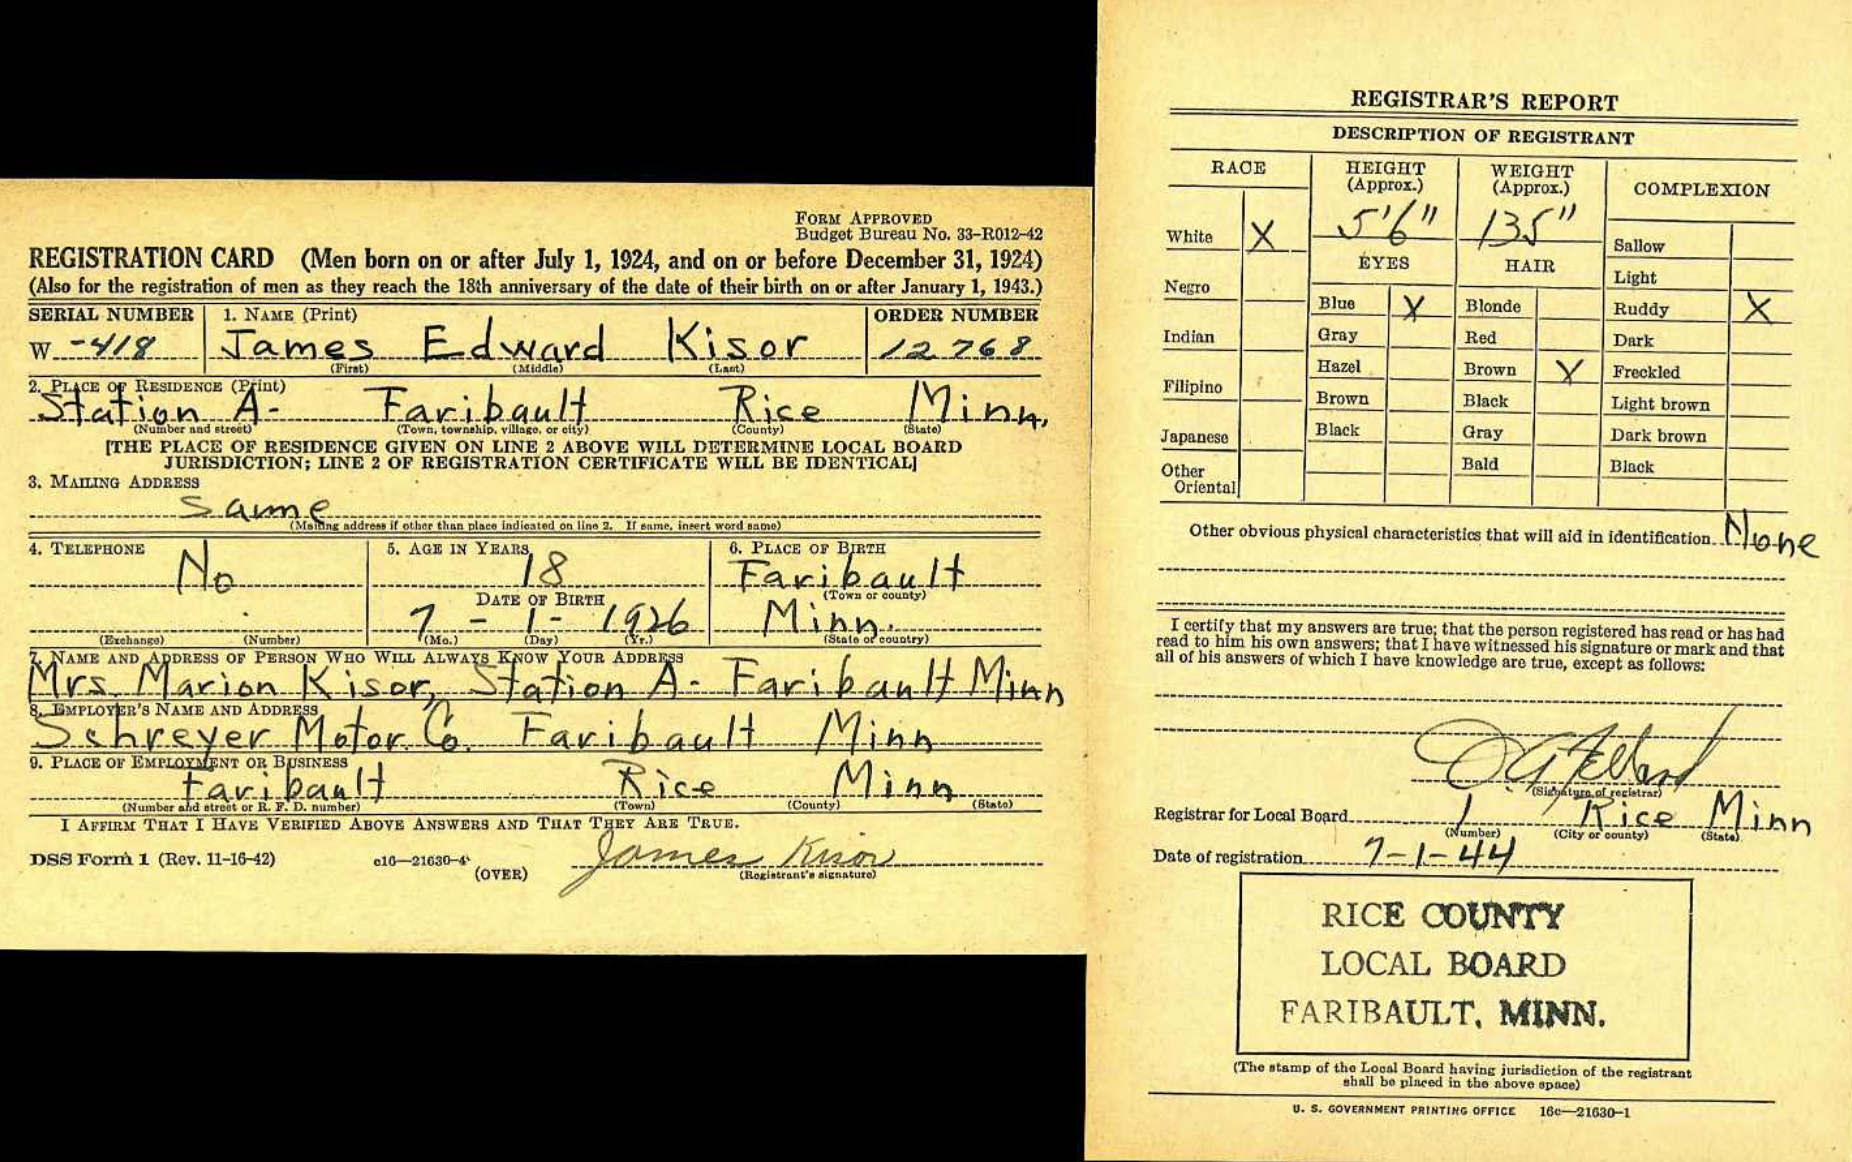 FORM APPROVED
Budget Bureau No. 33-R012-42
REGISTRATION CARD (Men born on or after July 1, 1924, and on or before December 31, 1924)
(Also for the registration of men as they reach the 18th anniversary of the date of their birth on or after January 1, 1943.)
SERIAL NUMBER 1. NAME (Print) ORDER NUMBER
W -418 James Edward Kisor 12768
(First) (Middle) (Last)
2. PLACE OF RESIDENCE (Print)
Station A- Faribault Rice Minn.
(Number and street) (Town, township, village, or city) (County) (State)
[THE PLACE OF RESIDENCE GIVEN ON LINE 2 ABOVE WILL DETERMINE LOCAL BOARD
JURISDICTION; LINE 2 OF REGISTRATION CERTIFICATE WILL BE IDENTICAL]
3. MAILING ADDRESS
Same
(Mailing address if other than place indicated on line 2. If same, insert word same)
4. TELEPHONE 5. AGE IN YEARS 6. PLACE OF BIRTH
No 18 Faribault
DATE OF BIRTH (Town or county)
7 - 1 - 1926 Minn.
(Exchange) (Number) (Mo.) (Day) (Yr.) (State or country)
7. NAME AND ADDRESS OF PERSON WHO WILL ALWAYS KNOW YOUR ADDRESS
Mrs. Marion Kisor, Station A- Faribault Minn
8. EMPLOYER'S NAME AND ADDRESS
Schreyer Motor Co. Faribault Minn
9. PLACE OF EMPLOYMENT OR BUSINESS
Faribault Rice Minn
(Number and street or R. F. D. number) (Town) (County) (State)
I AFFIRM THAT I HAVE VERIFIED ABOVE ANSWERS AND THAT THEY ARE TRUE.
James Kisor
DSS Form 1 (Rev. 11-16-42) c16—21630-4 (OVER) (Registrant's signature)
REGISTRAR'S REPORT
DESCRIPTION OF REGISTRANT
RACE HEIGHT (Approx.) WEIGHT (Approx.) COMPLEXION
White X 5'6" 135" Sallow
EYES HAIR Light
Negro Blue X Blonde Ruddy X
Indian Gray Red Dark
Filipino Hazel Brown X Freckled
Brown Black Light brown
Japanese Black Gray Dark brown
Other Oriental Bald Black
Other obvious physical characteristics that will aid in identification None
I certify that my answers are true; that the person registered has read or has had
read to him his own answers; that I have witnessed his signature or mark and that
all of his answers of which I have knowledge are true, except as follows:
(Signature of registrar)
Registrar for Local Board 1 Rice Minn
(Number) (City or county) (State)
Date of registration 7-1-44
RICE COUNTY
LOCAL BOARD
FARIBAULT, MINN.
(The stamp of the Local Board having jurisdiction of the registrant
shall be placed in the above space)
U. S. GOVERNMENT PRINTING OFFICE 16c—21630-1